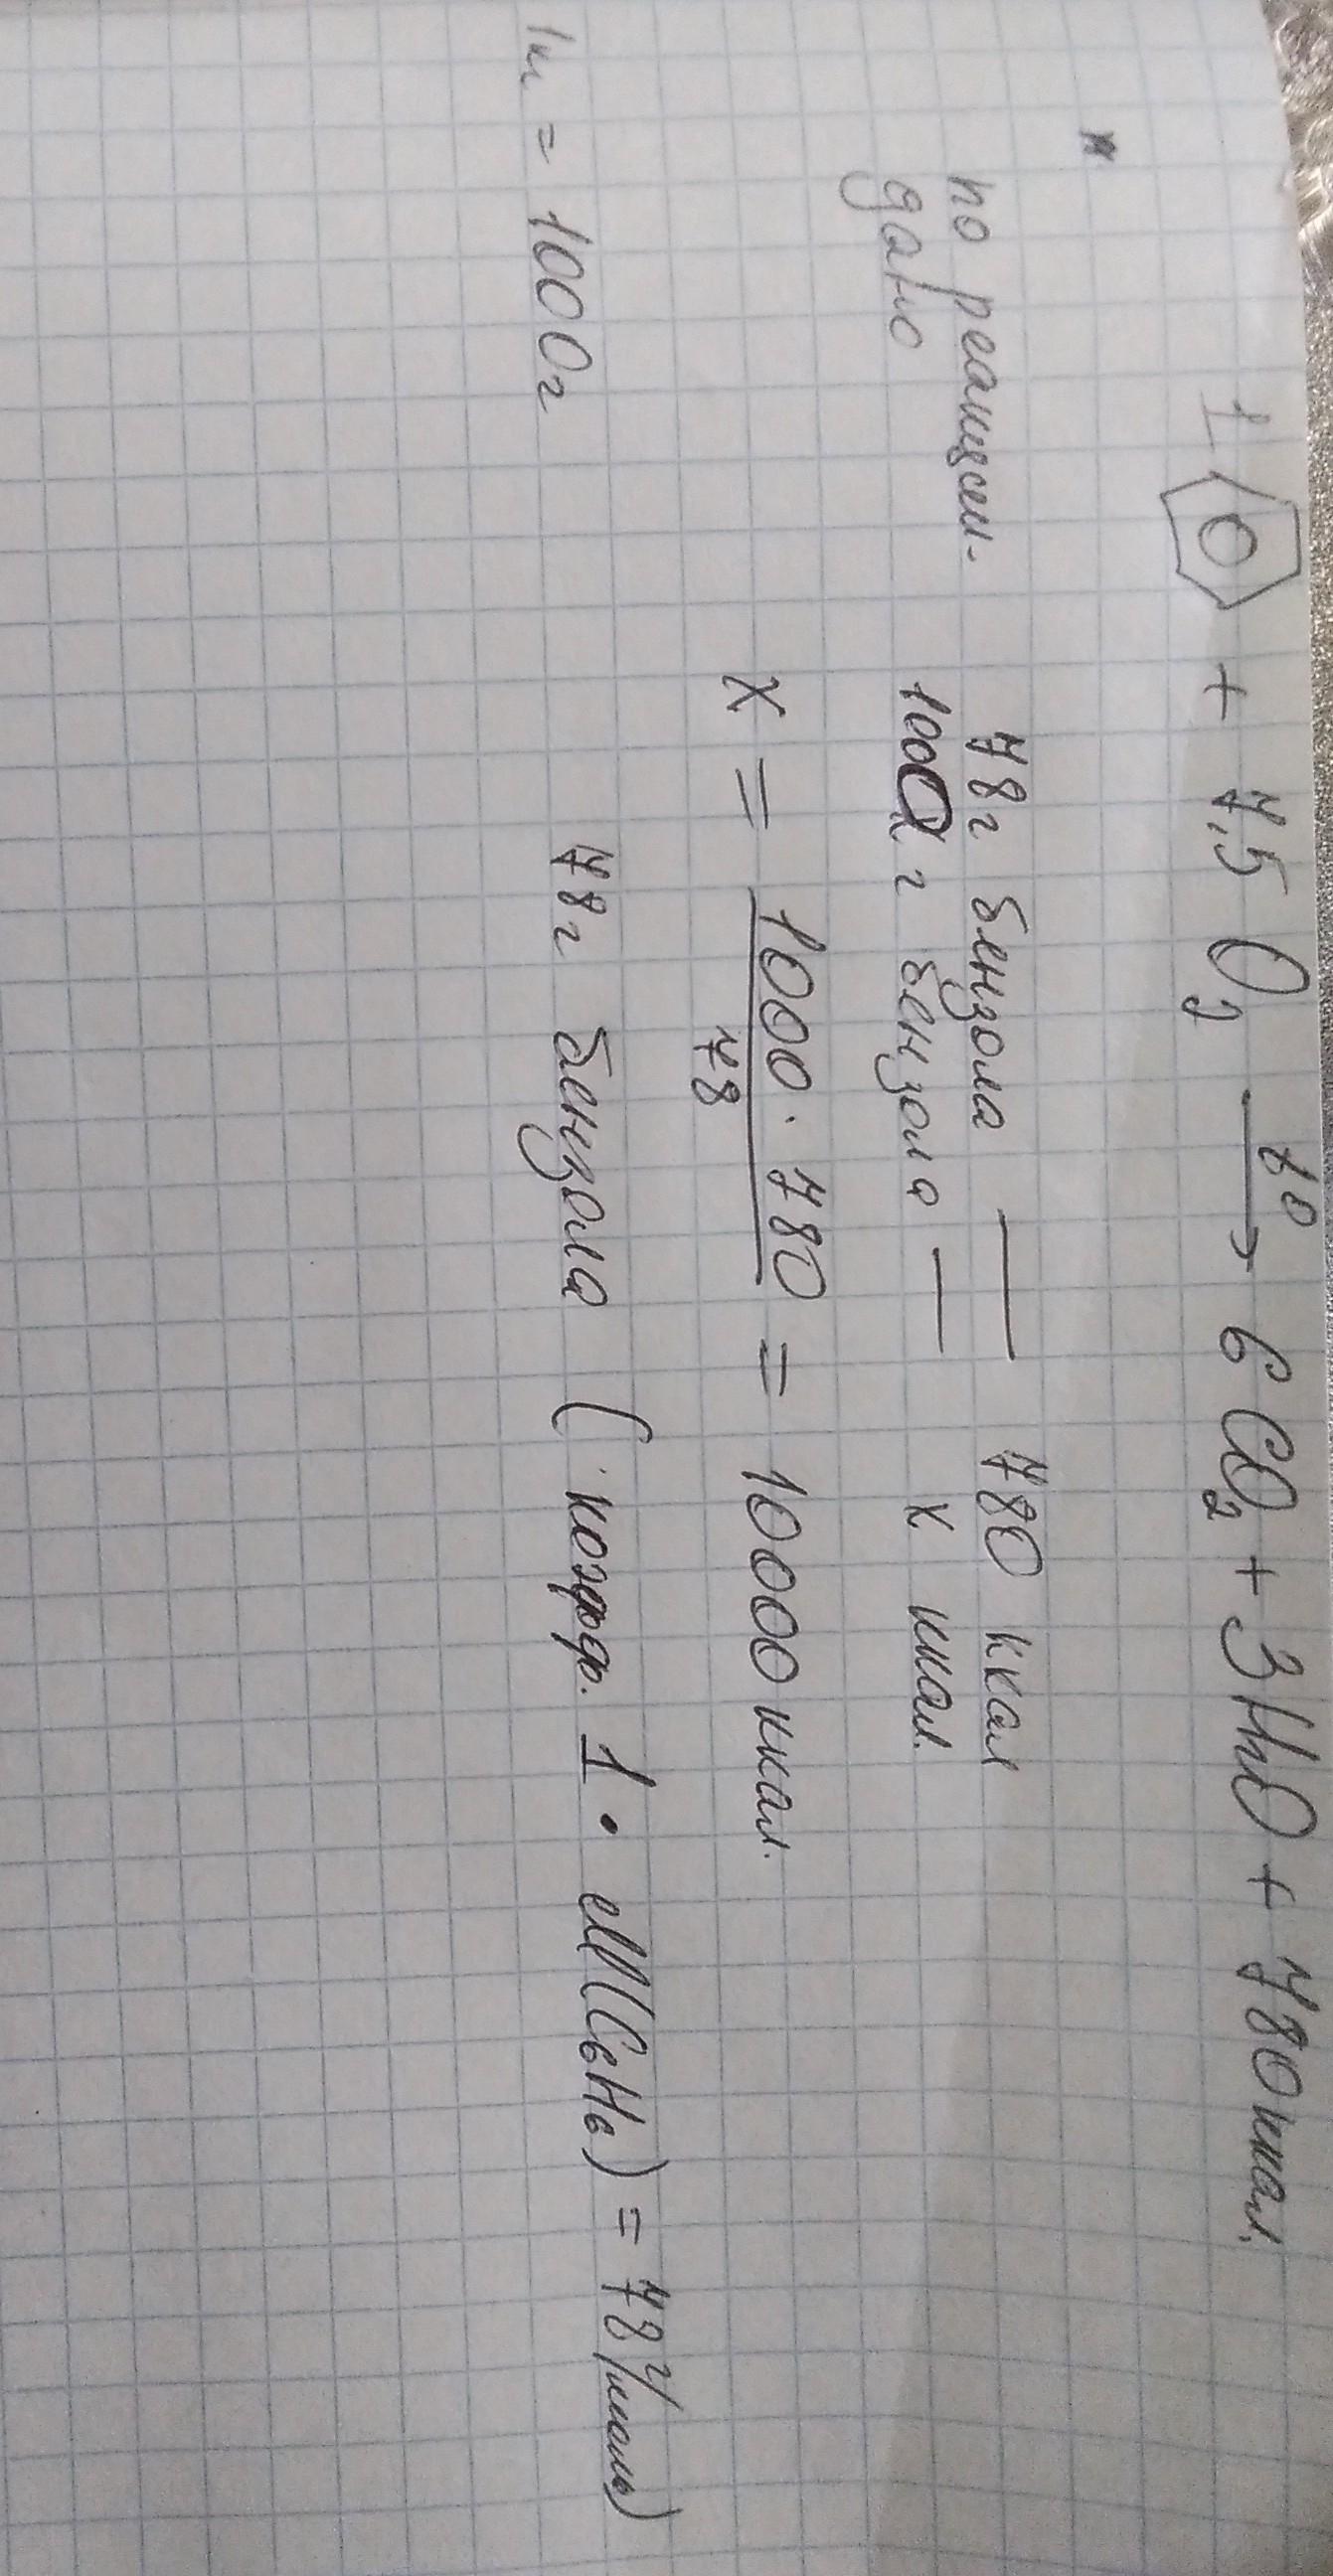 1 + 7,5 O2 t° → 6 CO2 + 3 H2O + 780 ккал.
по реакции. 78 г бензола — 780 ккал
дано 1000 г бензола — х ккал.
х = 1000 · 780 / 78 = 10000 ккал.
78 г бензола ( коэфф. 1 · M(C6H6) = 78 г/моль)
1 кг = 1000 г